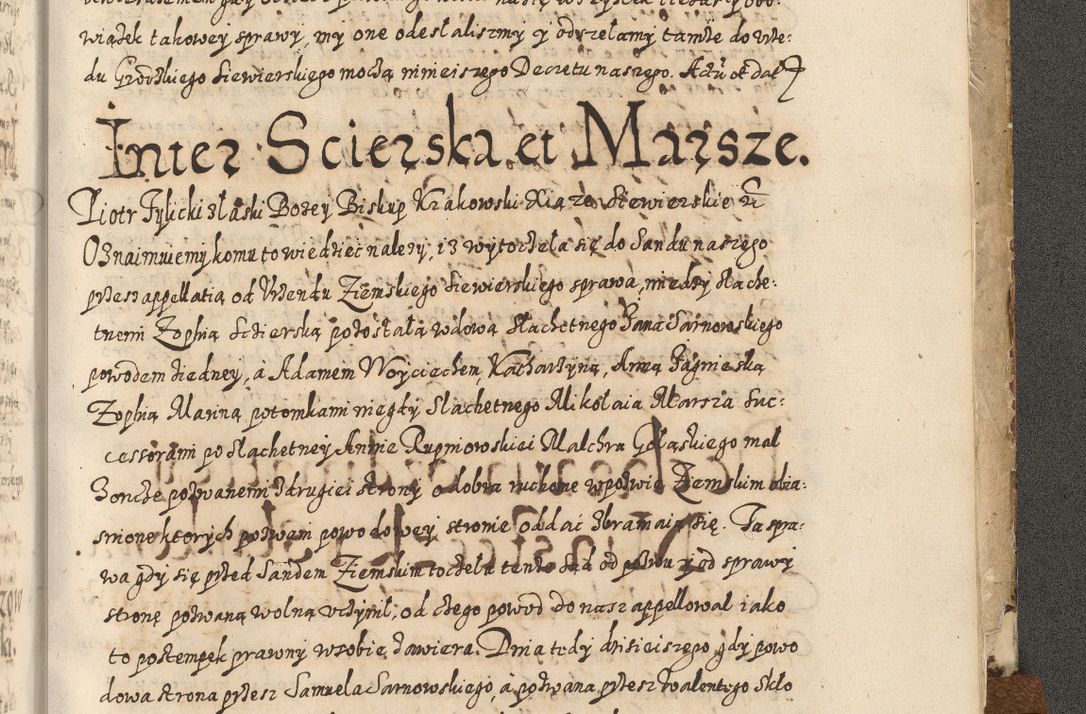 wiązek takowey sprawy, my one odesłalismy y odsyłamy tamże do Vrzę-
du Grodzkiego Siewierskiego mocżą ninieiszego Decretu naszego. Actu et dat
Inter Scierska et Marsze.
Piotr Tylicki z łaski Bożey Biskup Krakowski Xiążę Siewierskie etc
Oznaimuiemy komu to wiedzieć należy, iż wytocżeła się do Sandu naszego
przez appellatią od Vrzendu Ziemskiego Siewierskiego sprawa, między słache-
tnem Zophią Scierską pozostałą wdową Słachetnego Jana Sarnowskiego
powodem z iedney, a Adamem Woyciechem, Katharzyną, Anną Jagnieską
Zophią Mariną potomkami niegdy Slachetnego Mikołaia Marsza Suc-
cessorami po słachetney Annie Rupniowskiei Malchra Gołaskiego mał
żoncże pozwanemi z drugiei strony o dobra ruchome w pozwie Ziemskim obia-
snione ktorych pozwani powodowey stronie oddać zbraniaią się. Ta spra-
wa gdy się przed Sandem Ziemskim tocżeła tenże Sąd od pozwu y od sprawy
stronę pozwaną wolną vcżynił, od cżego powod do nas appellował iako
to postempek prawny w sobie zawiera. Dnia tedy dzisieiszego gdy powo
dowa strona przez Samuela Sarnowskiego, a pozwana przez Walentego Skło